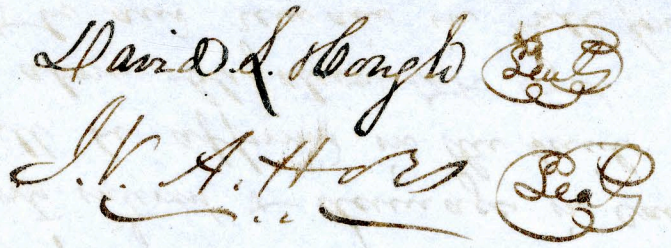 David L. Hough Seal
J. V. A. Hoes Seal